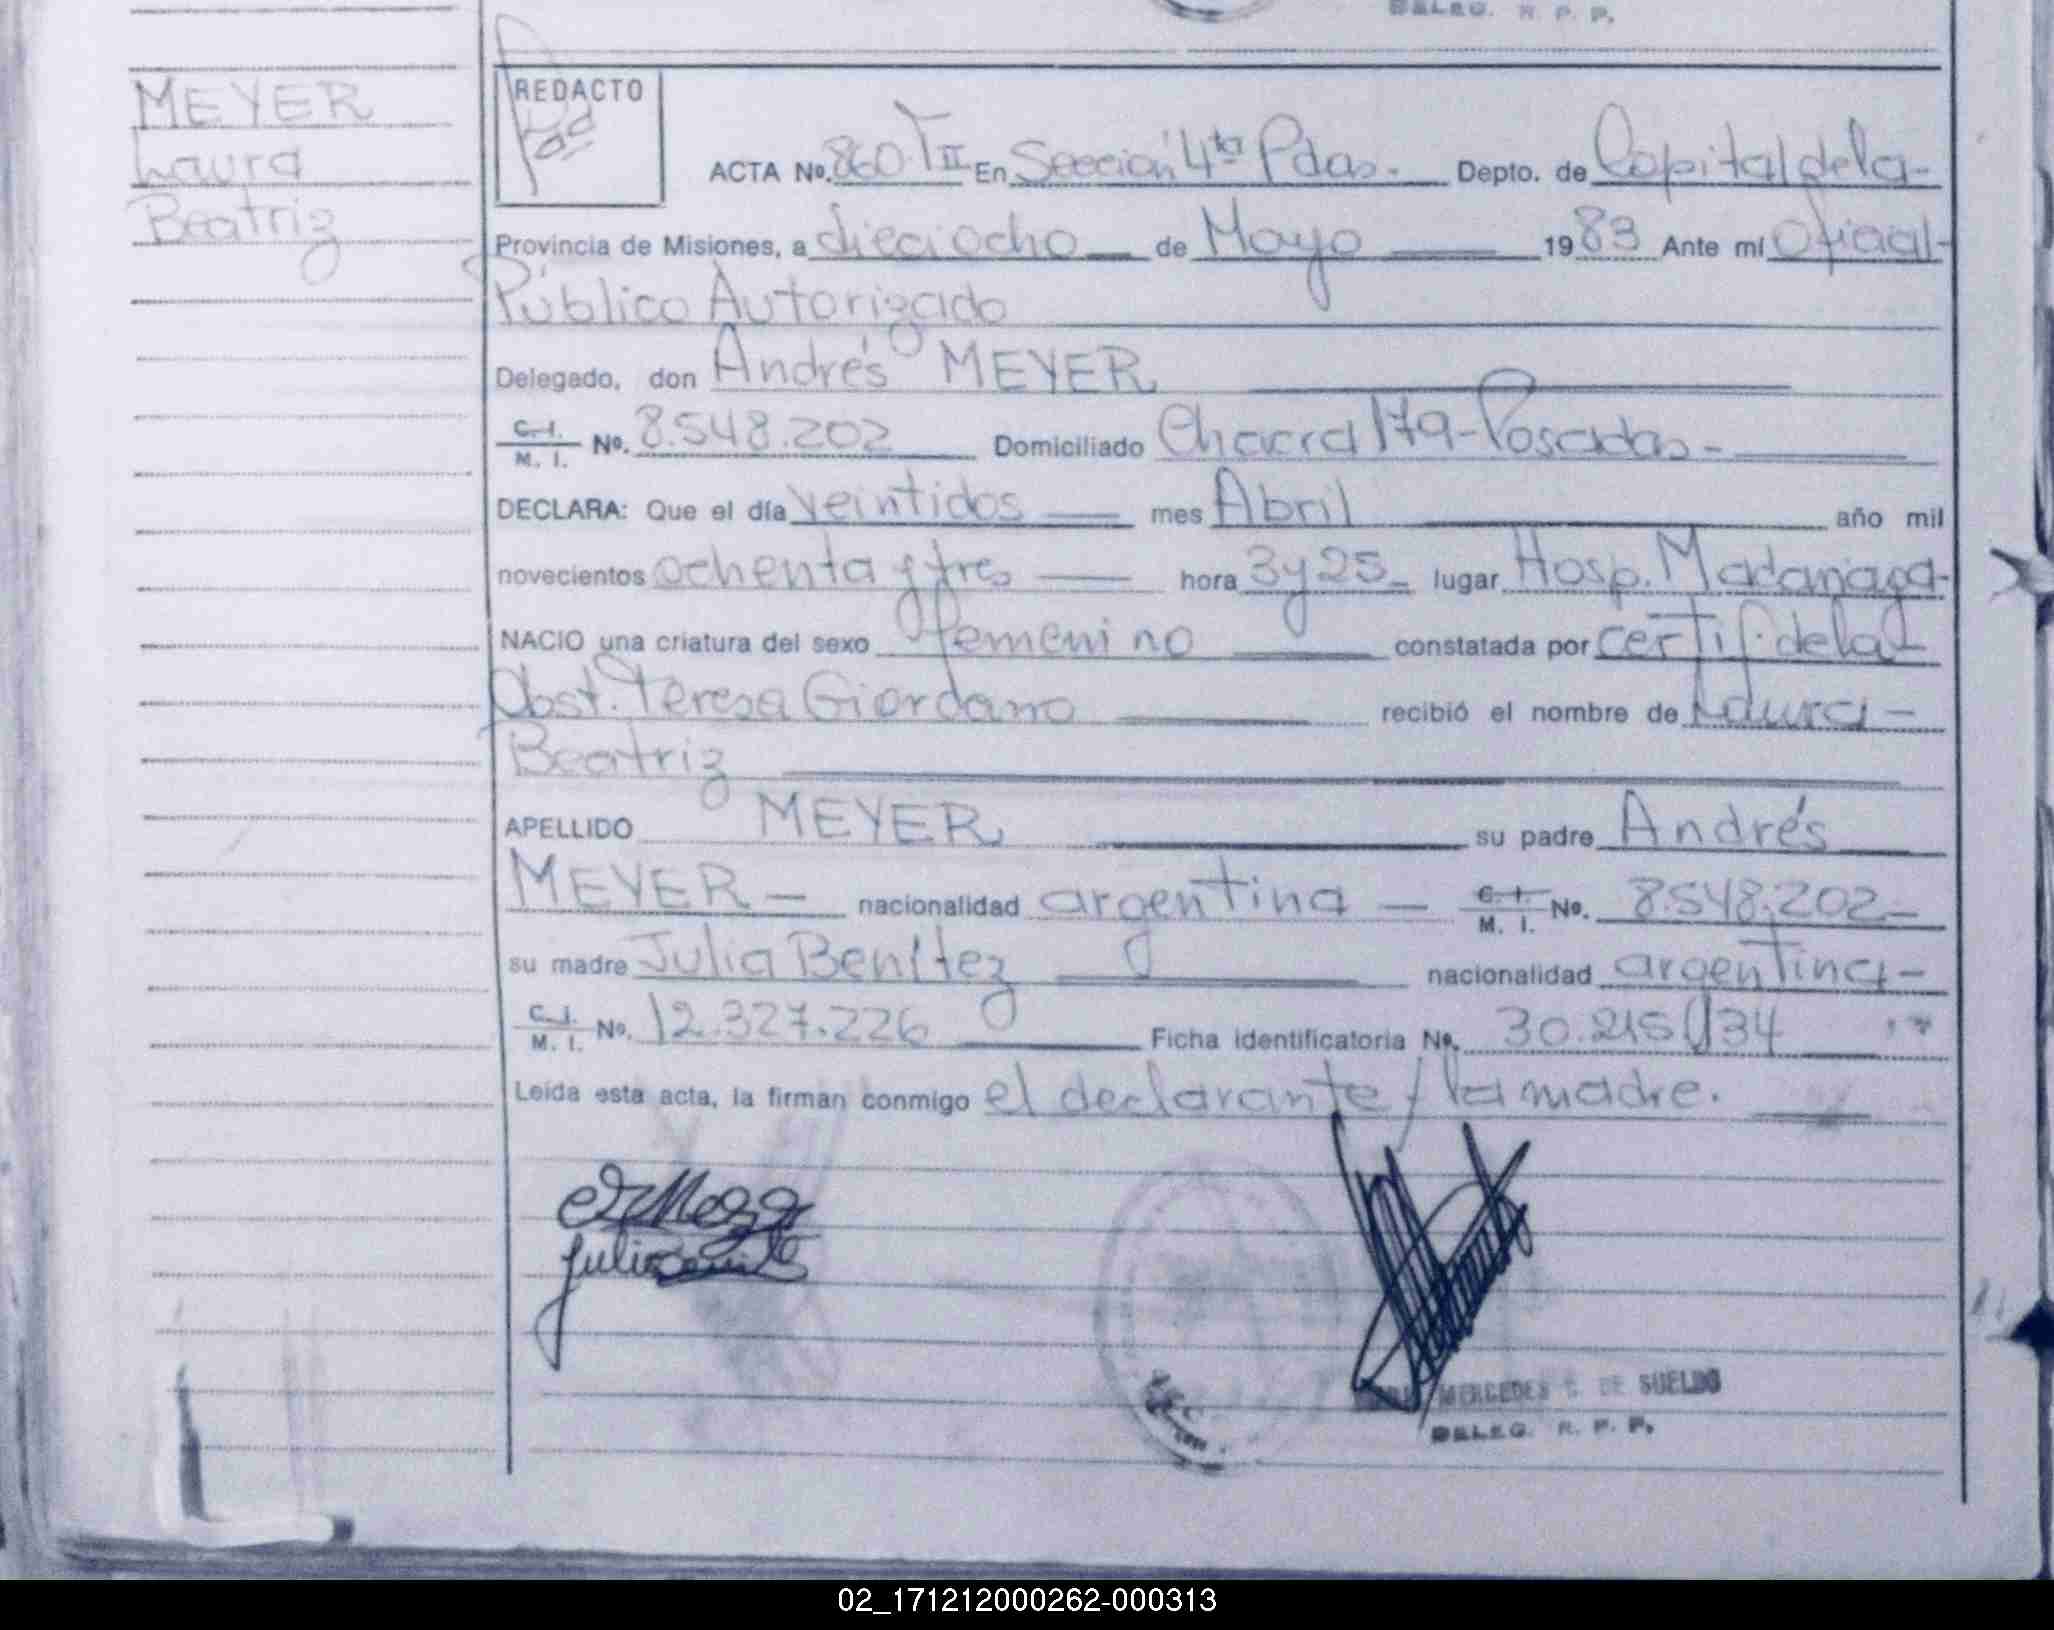 DELEG. R. P. P.
MEYER
Laura
Beatriz
REDACTO
ACTA Nº. 860 TII En Sección 4ta Pdas. Depto. de Capital de la
Provincia de Misiones, a dieciocho de Mayo 1983 Ante mí Oficial
Público Autorizado
Delegado, don Andrés MEYER
C. I.
M. I. Nº. 8.548.202 Domiciliado Chacra 179 - Posadas -
DECLARA: Que el día veintidos mes Abril año mil
novecientos ochenta y tres hora 3 y 25 lugar Hosp. Madariaga
NACIO una criatura del sexo femenino constatada por certif. de la
Obst. Teresa Giordano recibió el nombre de Laura
Beatriz
APELLIDO MEYER su padre Andrés
MEYER - nacionalidad argentina - C. I.
M. I. Nº. 8.548.202 -
su madre Julia Benítez nacionalidad argentina -
C. I.
M. I. Nº. 12.327.226 Ficha identificatoria Nº. 30.215/34
Leída esta acta, la firman conmigo el declarante / la madre.
MERCEDES DE SUELDO
DELEG. R. P. P.
02_171212000262-000313